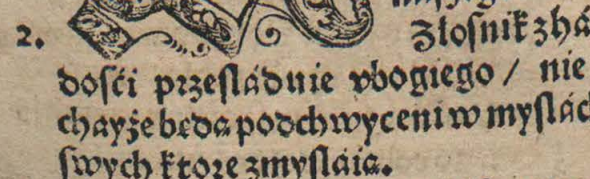 2. Złosnik z há
dośći przesláduie vbogiego / nie
chayże będą podchwyceni w myslách
swych ktore zmysláią.